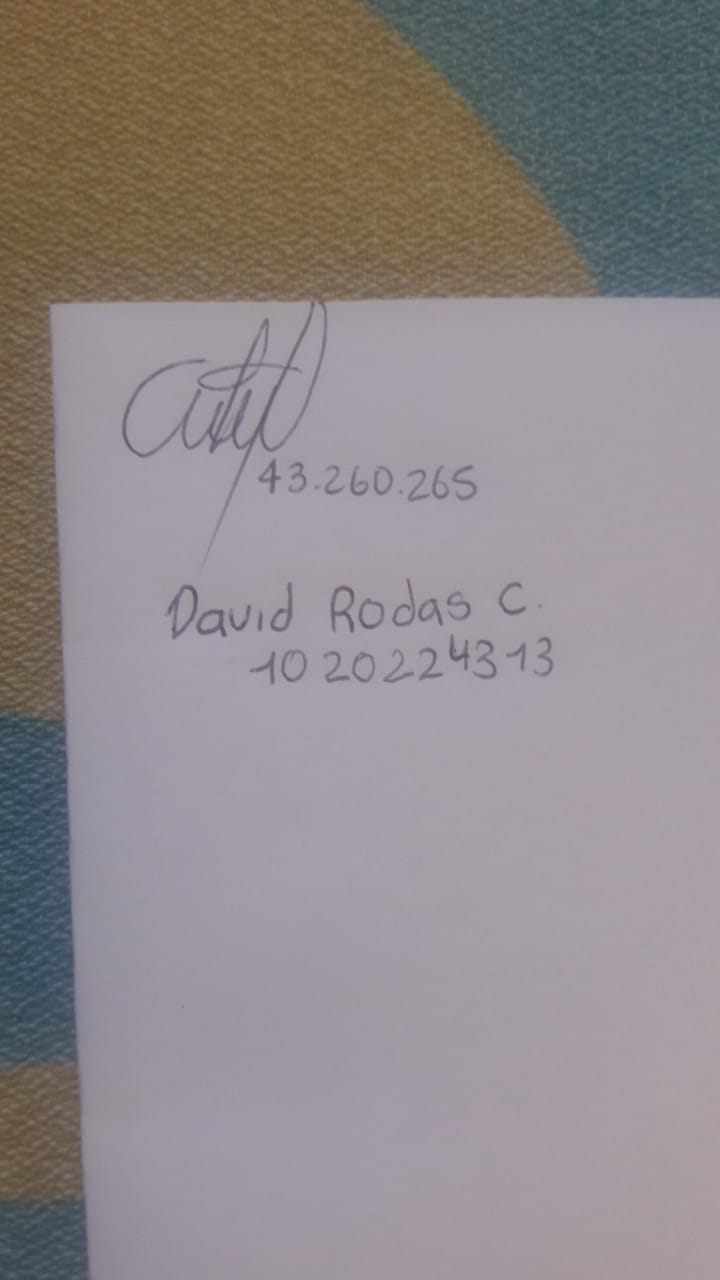 43.260.265
David Rodas C.
1020224313